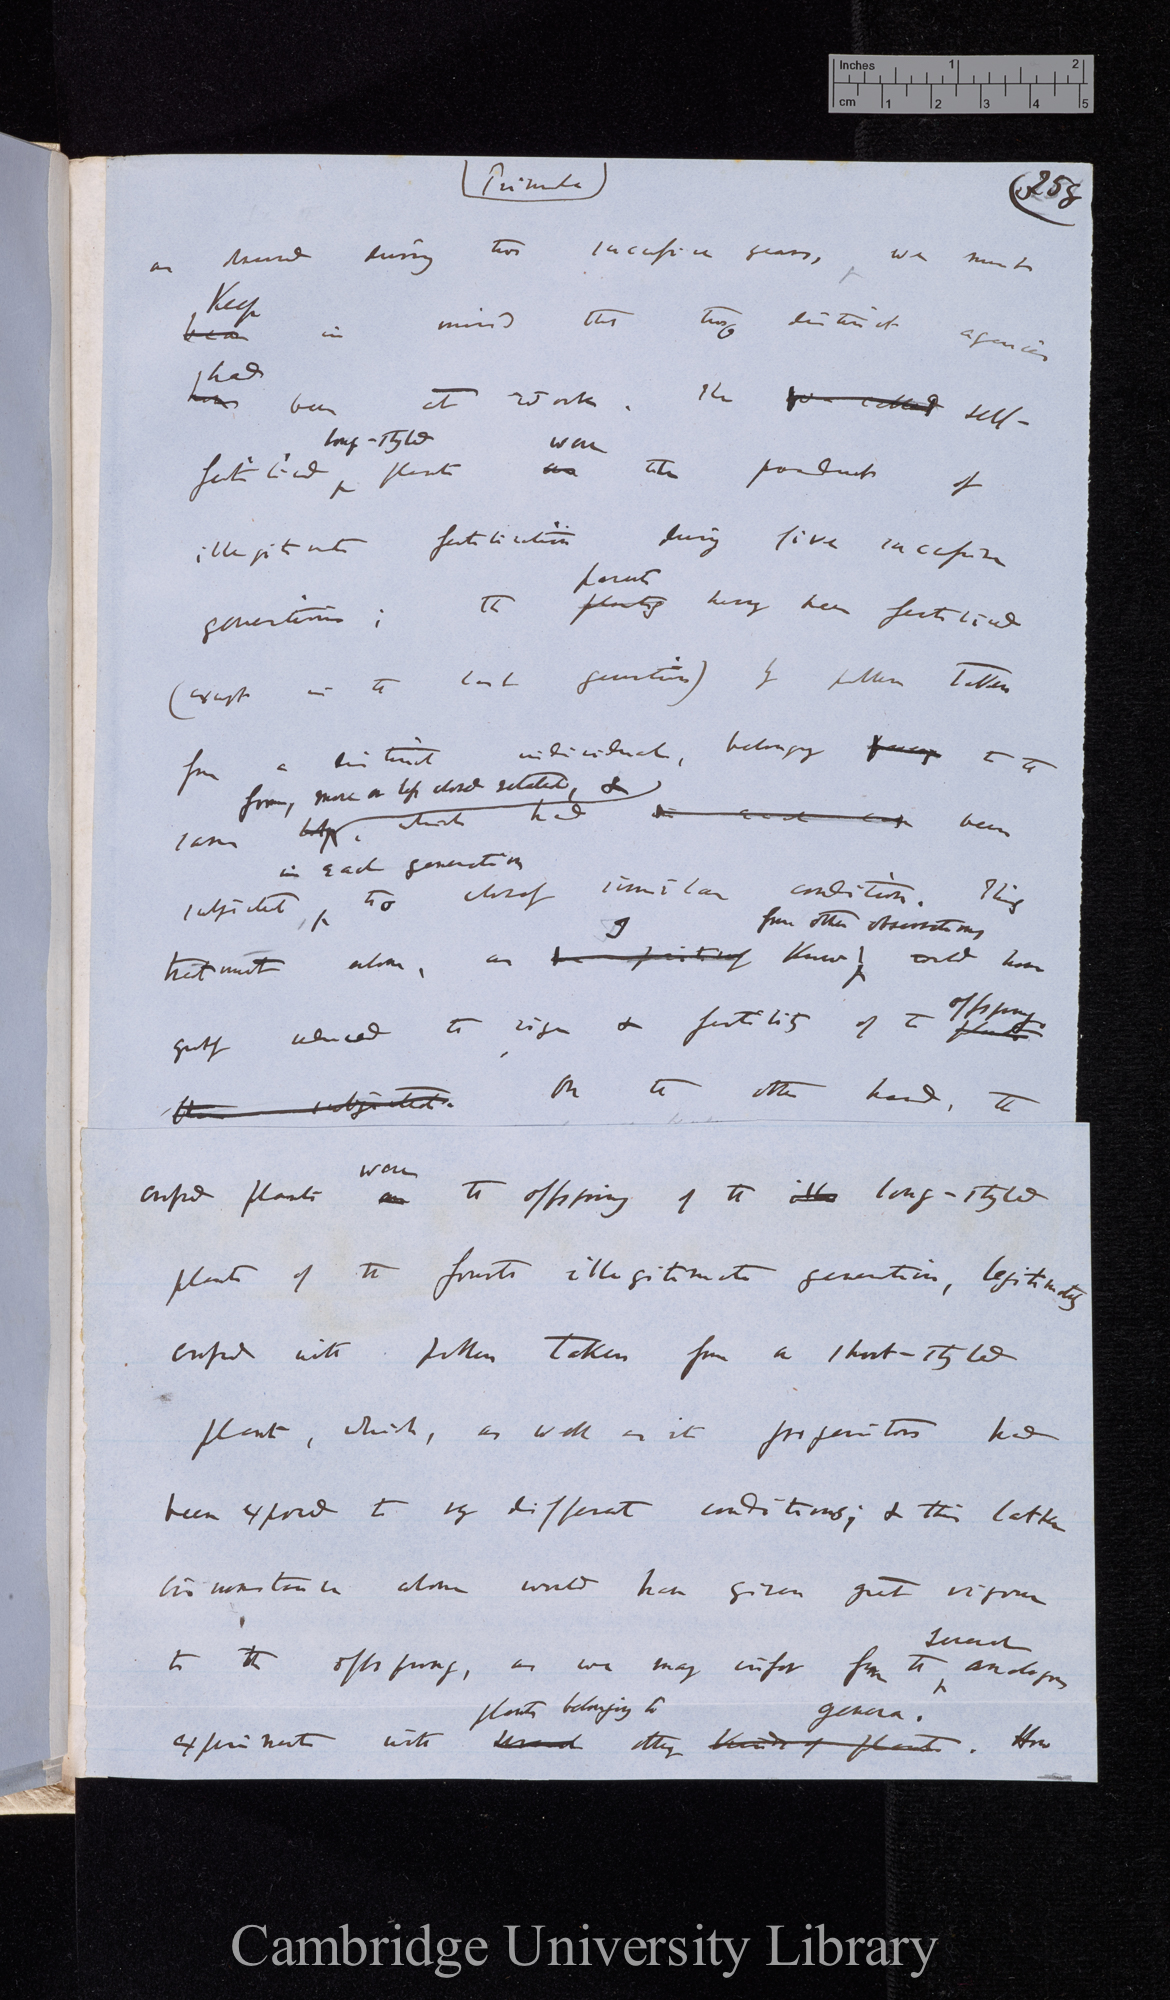 Inches 1 2
cm 1 2 3 4 5
(Primula)
258
as found during two successive years, we must
Keep
bear in mind that two distinct agencies
had
have been at work. The self-
long-styled were
fertilised plants are the products of
illegitimate fertilisation during five successive
parents
generations; the plants having been fertilised
(except in the last generation) by pollen taken
from a distinct individual, belonging to the
form, more or less closely related, &
same which had in each case been
in each generation
subjected to closely similar conditions. This
from other observations
treatment alone, as I know, would have
offspring.
greatly reduced the vigour & fertility of the plants
thus subjected. On the other hand, the
were
crossed plants are the offspring of the long-styled
plants of the fourth illegitimate generation, legitimately
crossed with pollen taken from a short-styled
plant, which, as well as its progenitors had
been exposed to very different conditions; & this latter
circumstance alone would have given great vigour
several
to the offspring, as we may infer from the analogous
plants belonging to genera.
experiments with several other kinds of plants. How
Cambridge University Library